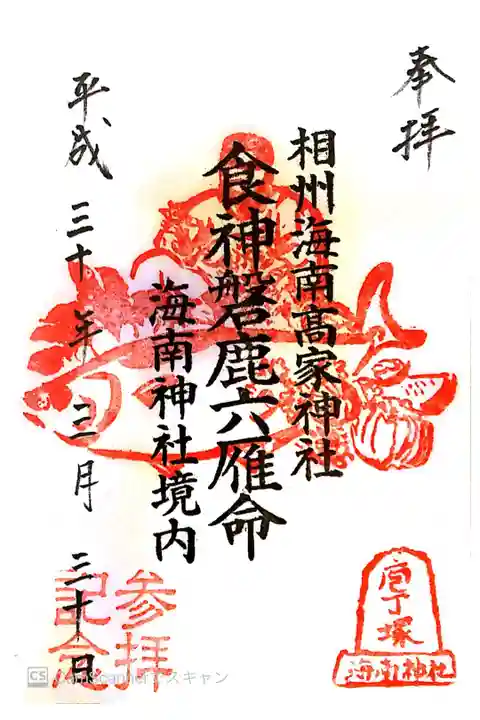 奉拝
相州海南髙家神社
食神磐鹿六雁命
海南神社境内
平成三十年三月三十日
庖丁塚
海南神社
参拝
記念
CS CamScannerでスキャン